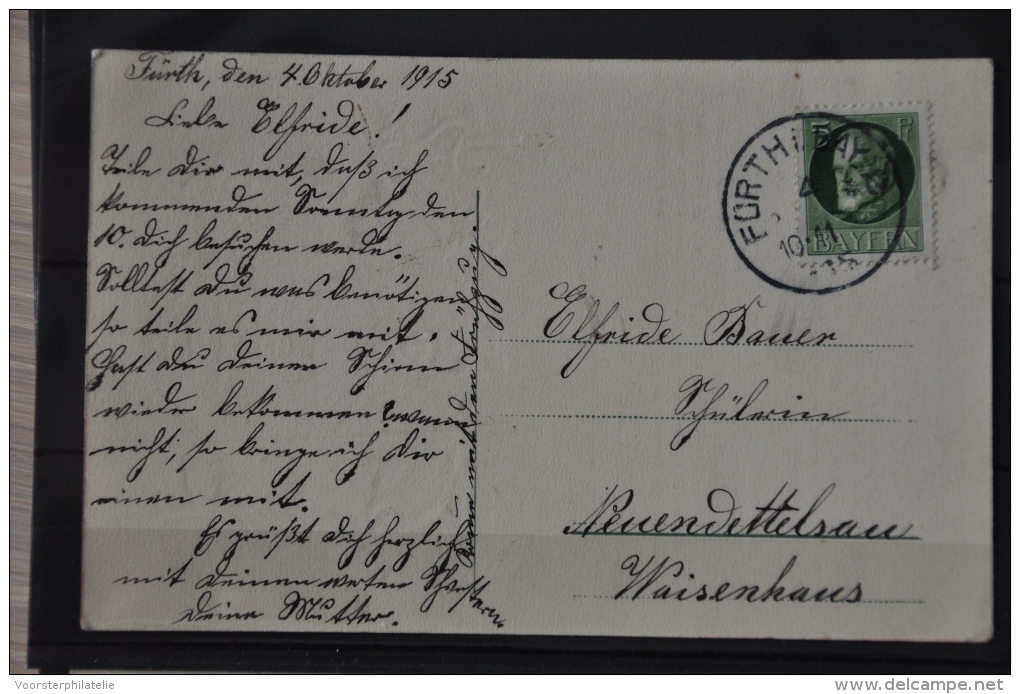 Fürth, den 4. Oktober 1915
Liebe Elfride!
Teile Dir mit, daß ich
kommenden Sonntag den
10. Dich besuchen werde.
Solltest Du was benötigen
so teile es mir mit.
Hast Du Deinen Schirm
wieder bekommen? wenn
nicht, so bringe ich Dir
einen mit.
Es grüßt Dich herzlich
mit Deinen werten Schwestern
Deine Mutter.
Komme mit den
Elfride Bauer
Schülerin
Neuendettelsau
Waisenhaus
5 Pf
BAYERN
FÜRTH i. BAY.
10-11
Voorsterphilatelie
delcampe.net